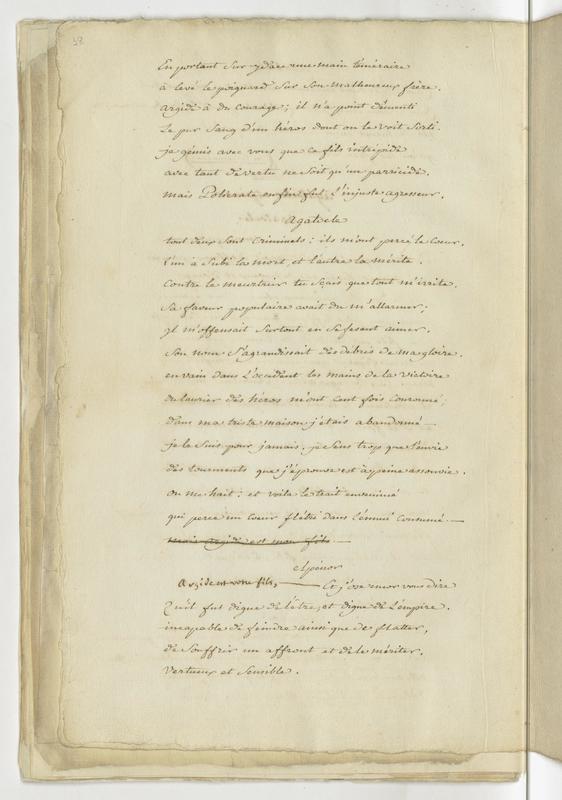 En portant Sur ydace une main téméraire
à levé le poignard Sur Son malheureux frère.
argide à du courage; il n'a point démenti
Le pur Sang d'un héros dont on le voit Sorti.
je gémis avec vous que ce fils intrépide
avec tant de vertu ne Soit qu'un parricide.
mais Policrate enfin fut l'injuste agresseur.
agatocle
tout deux Sont criminels: ils m'ont percé le Coeur.
l'un à Subi la mort, et l'autre la mérite.
Contre le meurtrier tu Sçais que tout m'irrite.
Sa faveur populaire avait du m'allarmer;
yl m'offensait Surtout en Se fesant aimer.
Son nom S'agrandissait des débris de ma gloire.
en vain dans L'occident les mains de la victoire
du laurier des héros m'ont cent fois couronné,
dans ma triste maison j'étais abandonné
je le Suis pour jamais. je Sens trop que l'envie
des tourments que j'éprouve est à peine assouvie.
on me hait: et voila le trait envenimé
qui perce un coeur flétri dans l'ennui consumé
mais argide est mon fils
elpénor
argide est votre fils, Et j'ose encor vous dire
Qu'il fut digne de l'être, et digne de L'empire.
incapable de feindre ainsi que de flatter,
de Souffrir un affront et de le mériter.
vertueux et Sensible.